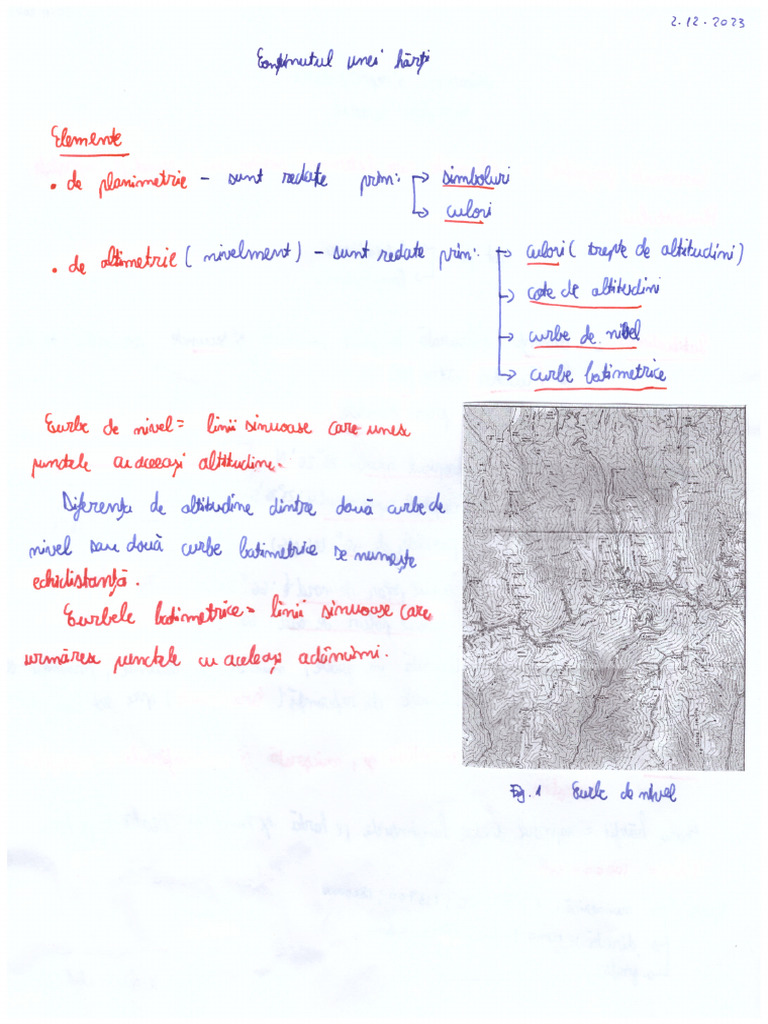 2.12.2023
Conținutul unei hărți
Elemente
• de planimetrie – sunt redate prin: → simboluri
→ culori
• de altimetrie (nivelment) – sunt redate prin: → culori (trepte de altitudini)
→ cote de altitudini
→ curbe de nivel
→ curbe batimetrice
Curbe de nivel = linii sinuoase care unesc
punctele cu aceeași altitudine.
Diferența de altitudine dintre două curbe de
nivel sau două curbe batimetrice se numește
echidistanță.
Curbele batimetrice = linii sinuoase care
urmăresc punctele cu aceleași adâncimi.
Fig. 1 Curbe de nivel